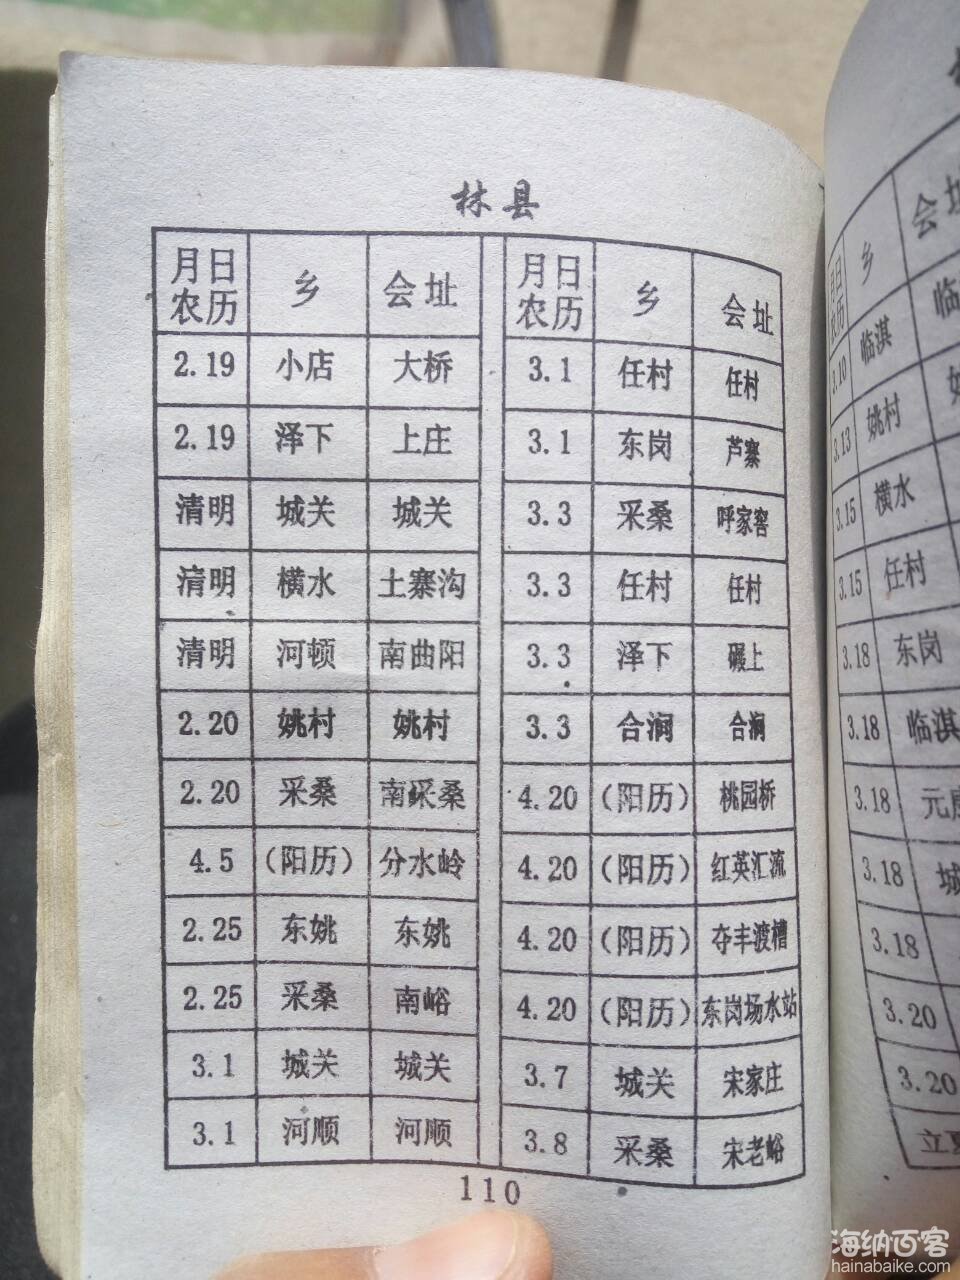 林县
月日 乡 会址 月日 乡 会址
农历 农历
2.19 小店 大桥 3.1 任村 任村
2.19 泽下 上庄 3.1 东岗 芦寨
清明 城关 城关 3.3 采桑 呼家窑
清明 横水 土寨沟 3.3 任村 任村
清明 河顿 南曲阳 3.3 泽下 碾上
2.20 姚村 姚村 3.3 合涧 合涧
2.20 采桑 南采桑 4.20 (阳历) 桃园桥
4.5 (阳历) 分水岭 4.20 (阳历) 红英汇流
2.25 东姚 东姚 4.20 (阳历) 夺丰渡槽
2.25 采桑 南峪 4.20 (阳历) 东岗场水站
3.1 城关 城关 3.7 城关 宋家庄
3.1 河顺 河顺 3.8 采桑 宋老峪
110
月日 乡 会址
农历
3.10 临淇 临
3.13 姚村
3.15 横水
3.15 任村
3.18 东岗
3.18 临淇
3.18 元
3.18 城
3.18
3.20
3.20
立夏
海纳百客
hainabaike.com